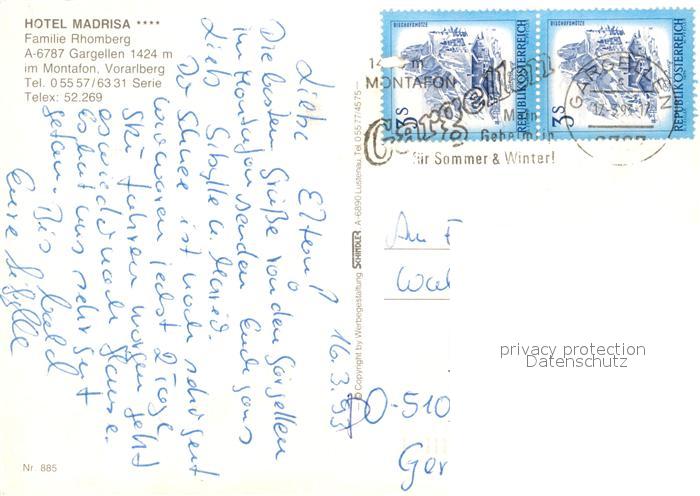 HOTEL MADRISA ****
Familie Rhomberg
A-6787 Gargellen 1424 m
im Montafon, Vorarlberg
Tel. 0 55 57/63 31 Serie
Telex: 52.269
Liebe Eltern! 16.3.93
Die besten Grüße von den Gargellen
im Montafon senden Euch ganz
lieb Sibylle u.
Der Schnee ist noch sehr gut
wir waren jetzt 2 Tage
Ski fahren morgen geht
es wieder nach Hause.
Es hat uns sehr gut
getan. Bis bald
Eure Sibylle
Nr. 885
© Copyright by Werbegestaltung SCHINDLER A-6890 Lustenau, Tel 0 55 77/4575
BISCHOFSMÜTZE
3 S
REPUBLIK ÖSTERREICH
BISCHOFSMÜTZE
3 S
REPUBLIK ÖSTERREICH
MONTAFON
Gargellen
Mein
Geheimtip
für Sommer & Winter!
GARGELLEN
An F
Wal
D-510
Gor
privacy protection
Datenschutz